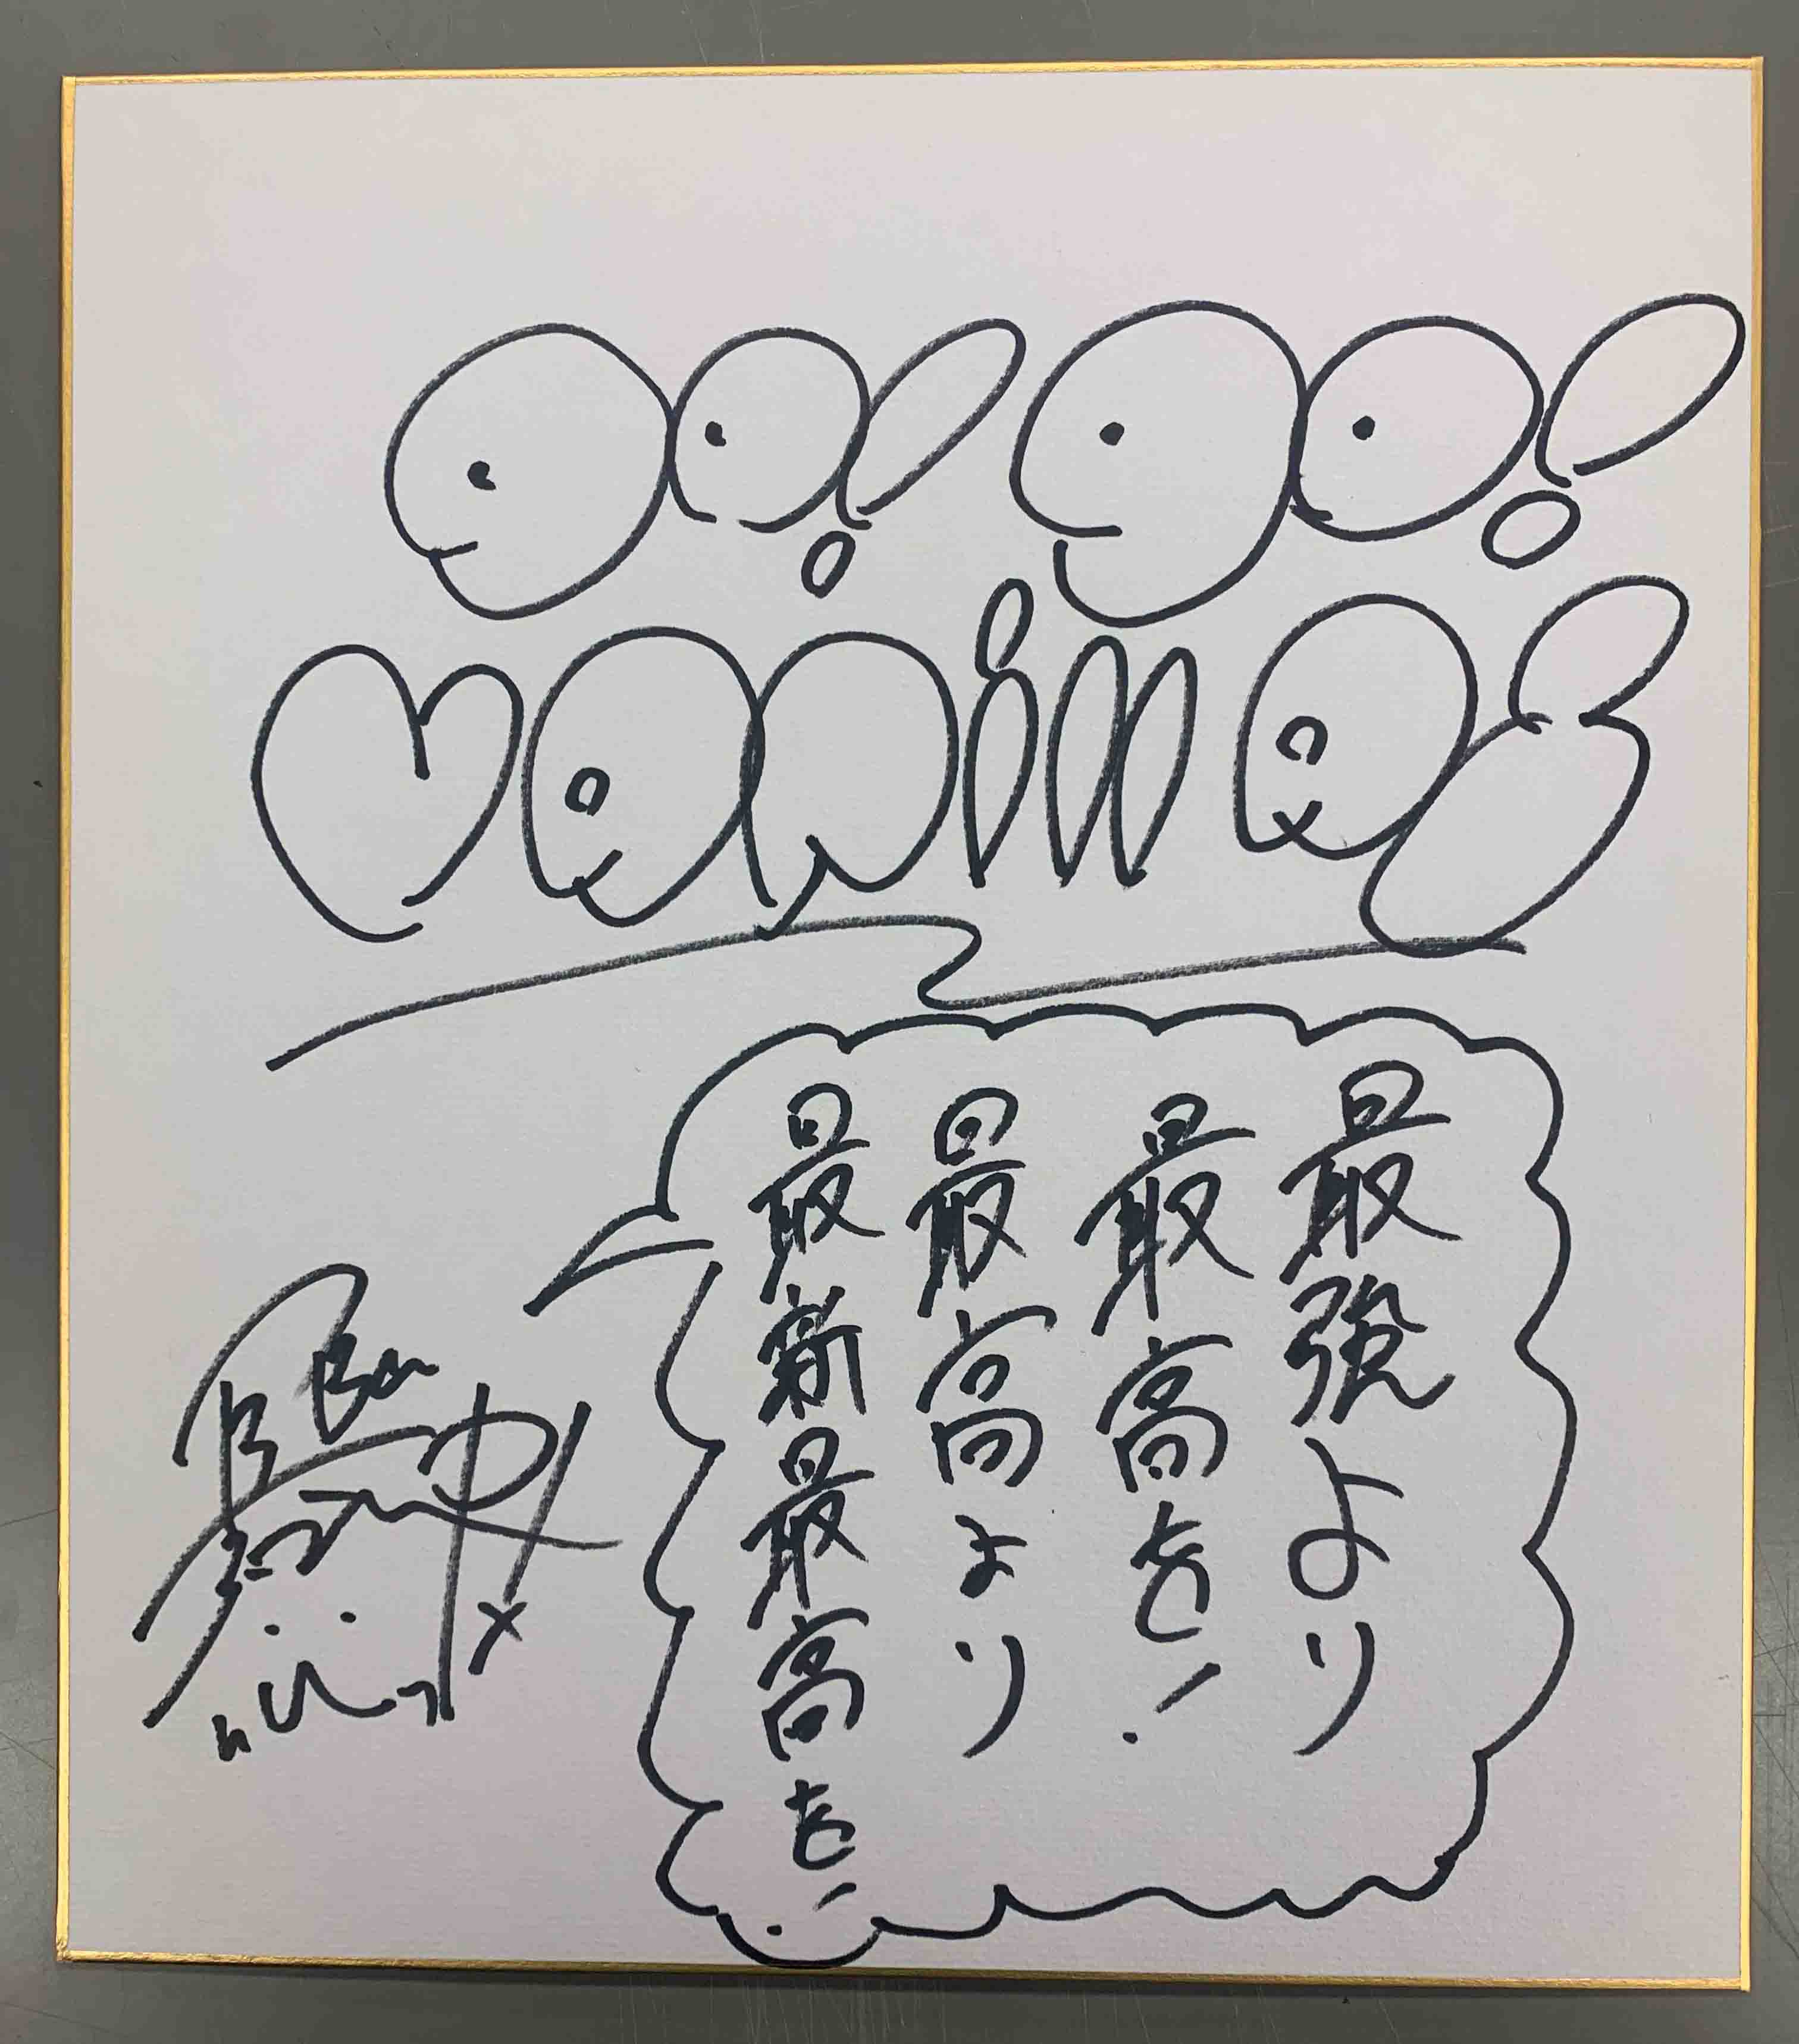 go!go!
vanillas
最強より
最高を!
最高より
最新最高を!